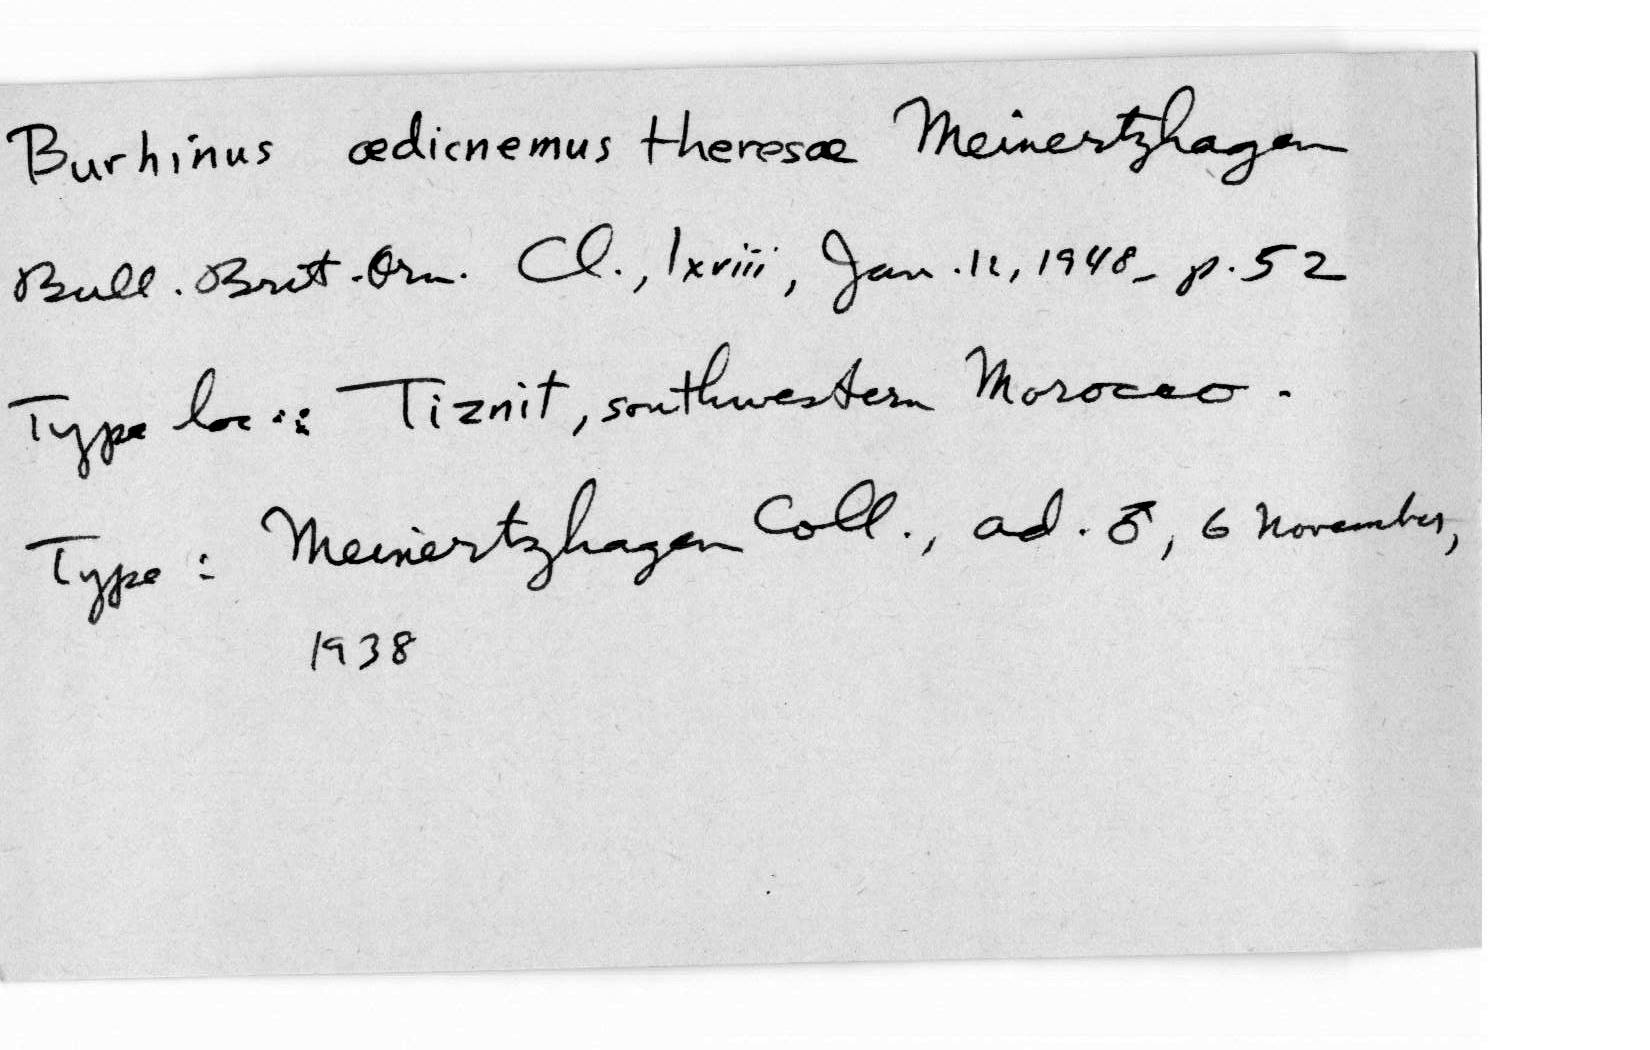 Burhinus œdicnemus theresæ Meinertzhagen
Bull. Brit. Orn. Cl., lxviii, Jan. 12, 1948, p. 52
Type loc.: Tiznit, southwestern Morocco.
Type: Meinertzhagen Coll., ad. ♂, 6 November,
1938